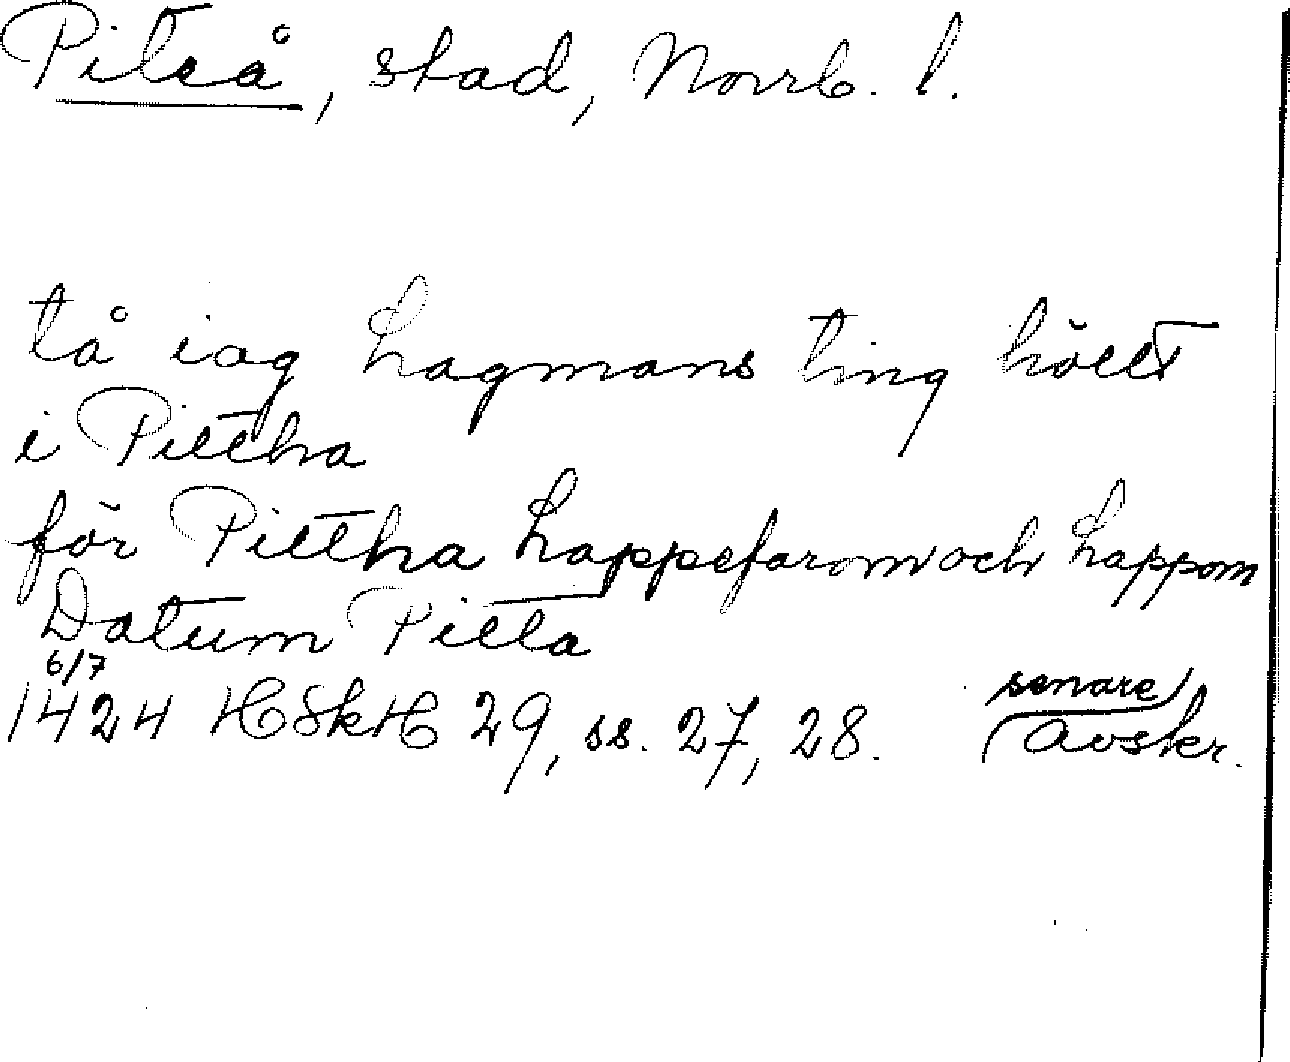 Piteå, stad, Norrb. l.
tå iag Lagmans ting höllt
i Pittha
för Pittha Lappefarom och Lappom
Datum Pitta
6/7
1424 HSkH 29, ss. 27, 28. senare
avskr.